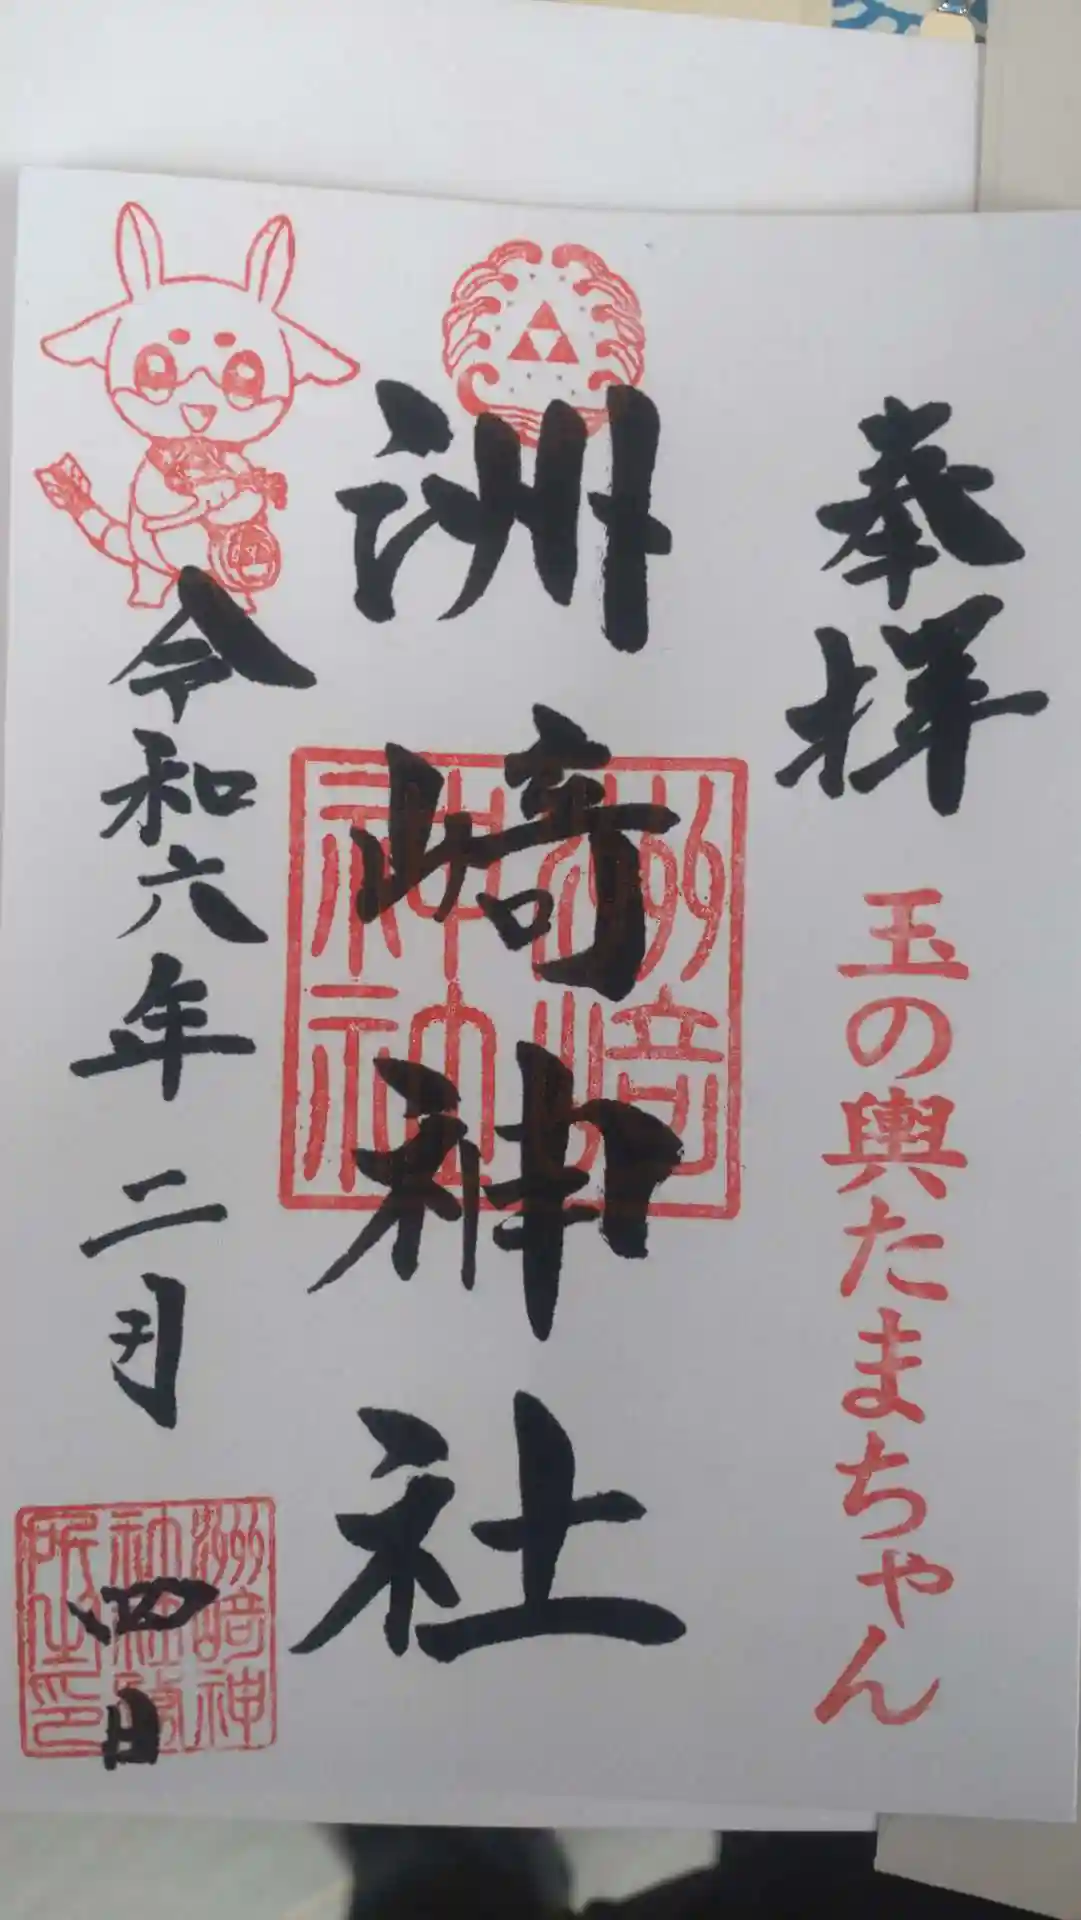 奉拝
玉の輿たまちゃん
洲崎神社
洲崎神社
令和六年二月四日
洲崎神
社社務
所之印